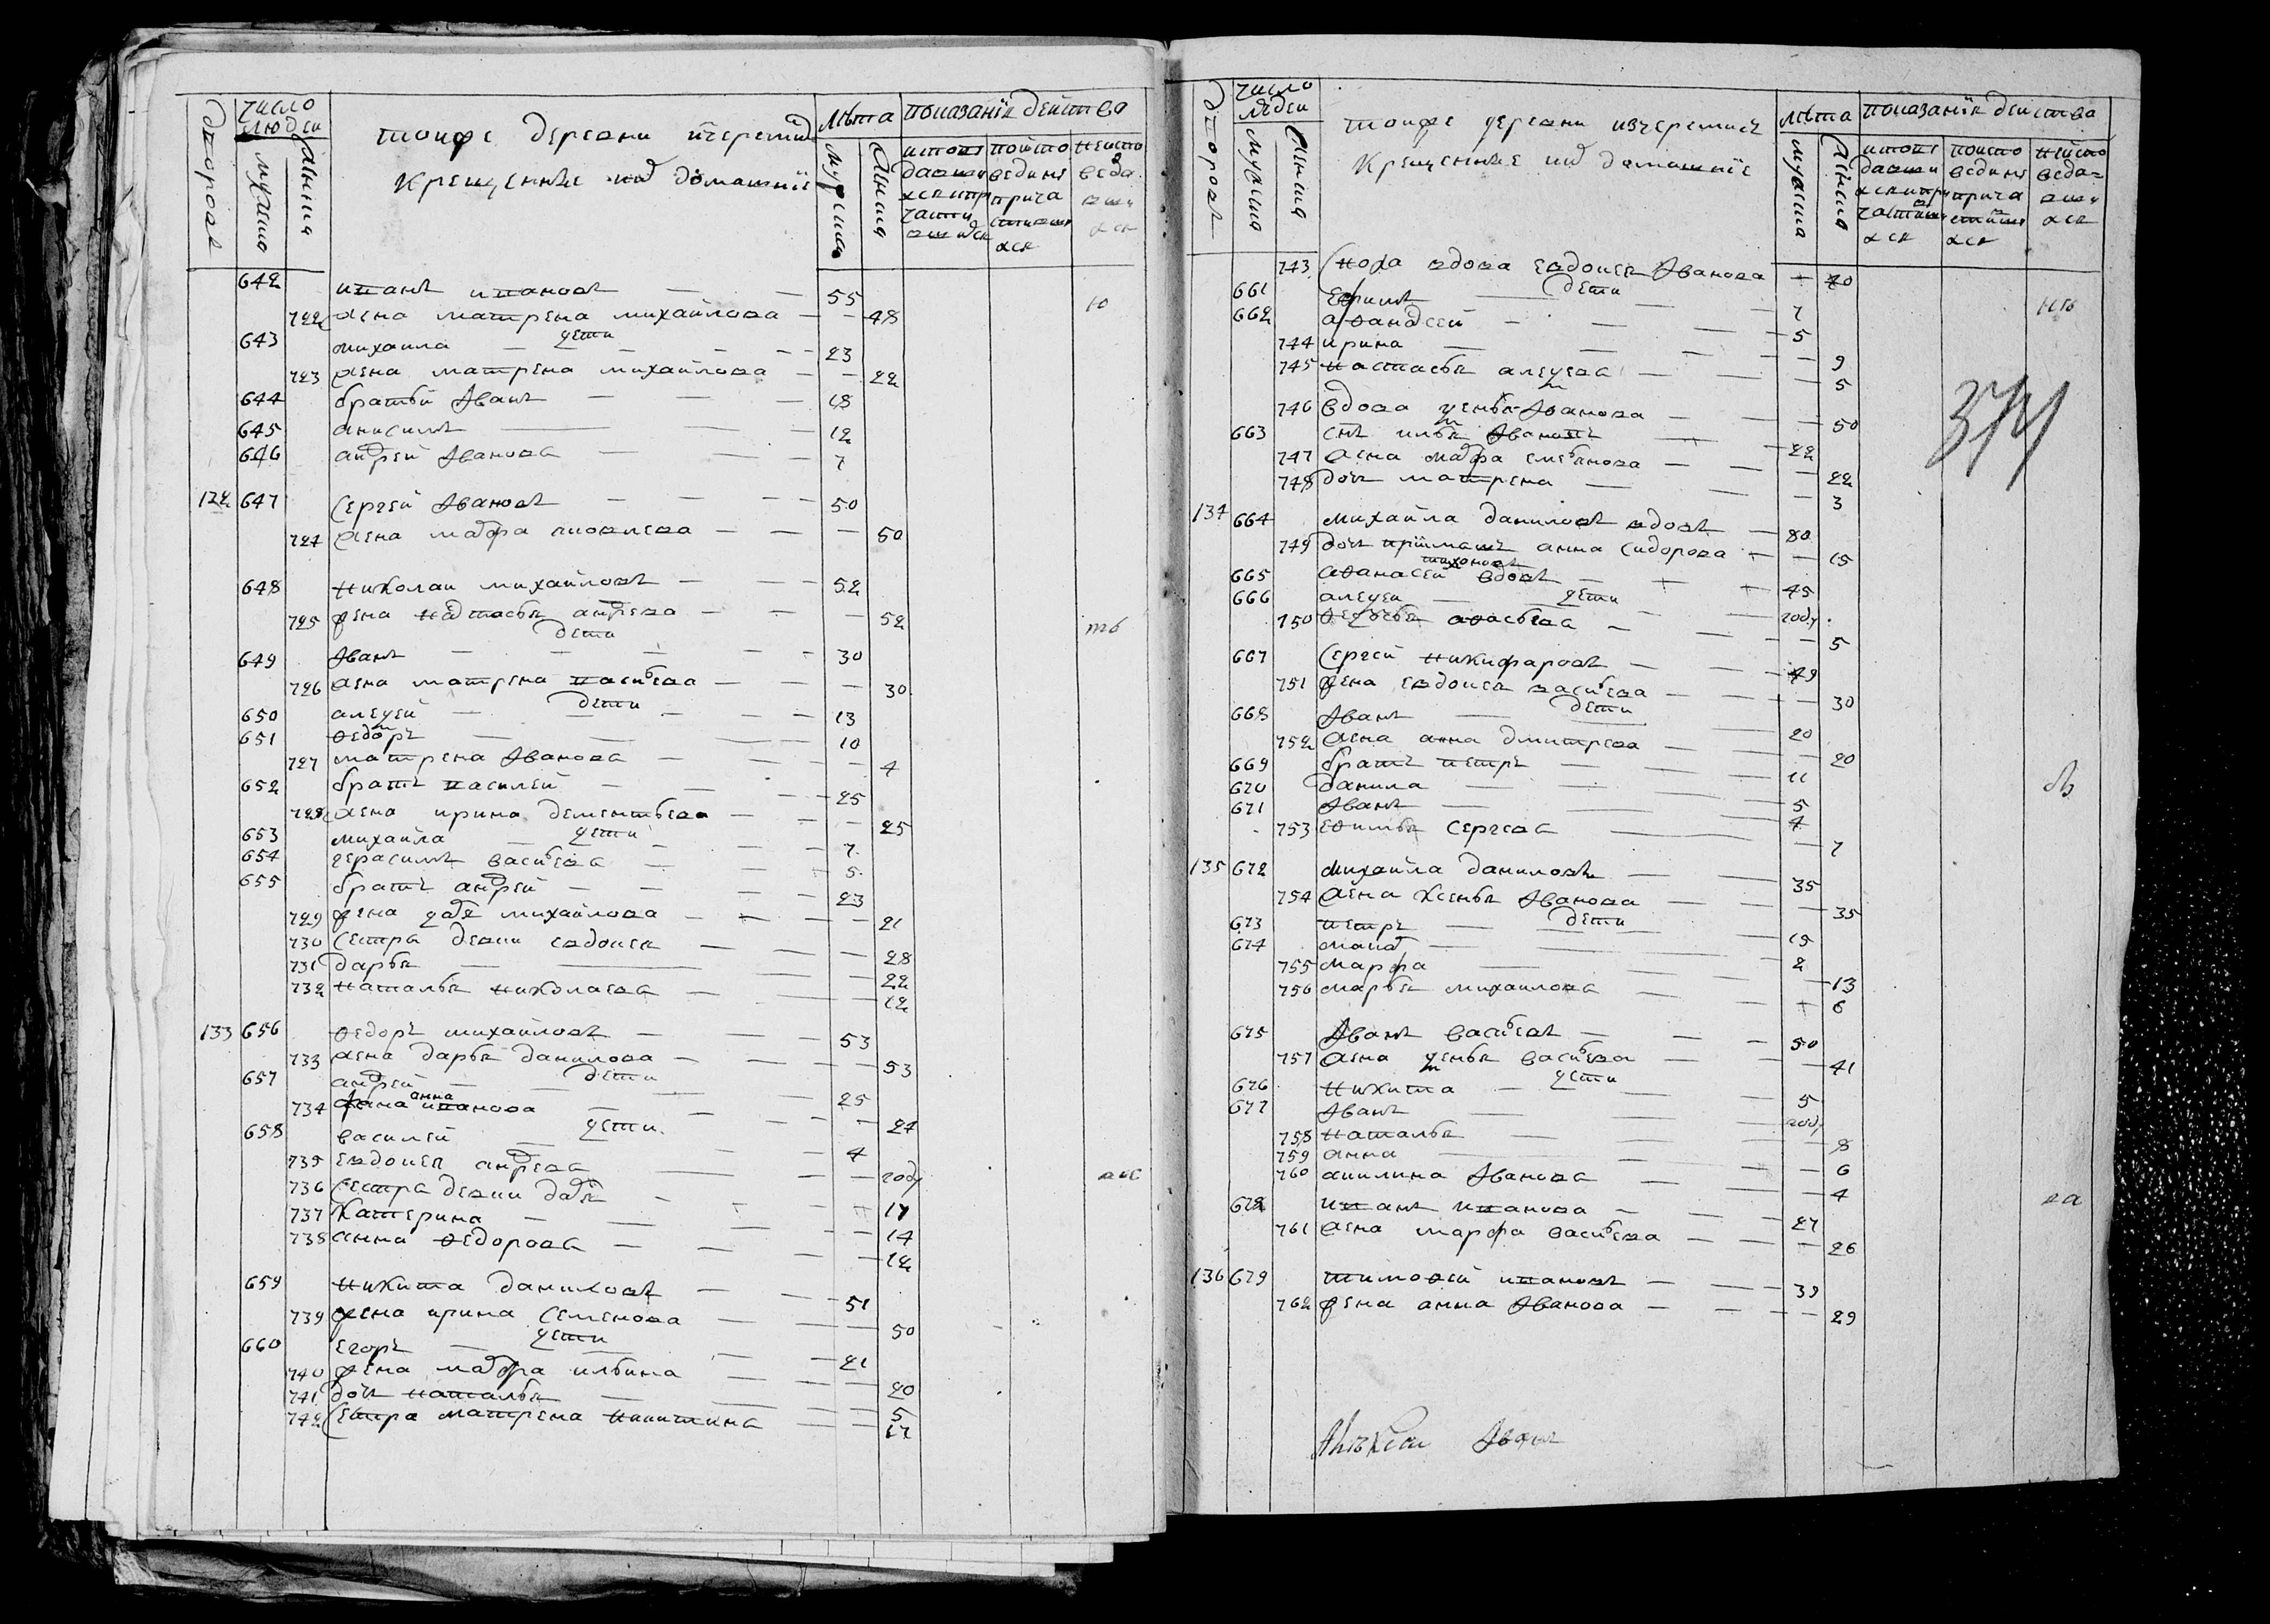 дворовъ
число людеи
мужеска
женска
тоиже деревни ичеремис
крещенные ид домашние
лѣта
мужеска
женска
показание действа
исповедавшихся и причастившихся
поисповедиие причастившихся
неисповедавшихся
642 иванъ ивановъ — — 55
722 жена матрена михаилова — — 48
ю
дети
643 михаила — — 23
723 жена матрена михаилова — — 22
644 братьи Иванъ — — 18
645 анисимъ — — 12
646 андрей Иванова — — 7
132 647 Сергей Ивановъ — — 50
724 жена мавра яковлева — — 50
648 николаи михаиловъ — — 52
725 жена настасья андреева — — 52
дети
ть
649 Иванъ — — 30
726 жена матрена васильева — — 30
дети
650 алеѯей — — 13
651 ѳедоръ — — 10
727 матрена Иванова — — 4
652 братъ василей — — 25
728 жена ирина дементьева — — 25
дети
653 михаила — — 7
654 герасимъ васильева — — 5
655 братъ андрей — — 23
729 жена михаилова — — 21
730 Сестра девки евдокея — — 28
731 дарья — — 22
732 наталья николаева — — 12
133 656 ѳедоръ михаиловъ — — 53
733 жена дарья данилова — — 53
дети
657 андрей — — 25
734 жена анна иванова — — 24
дети
658 василей — — 4
735 евдокея андреева — — году
736 Сестра девки — 17
737 Катерина — — 14
738 анна ѳедорова — — 12
659 никита даниловъ — — 51
739 жена ирина Семенова — — 50
дети
660 егоръ — — 21
740 жена мавра ильина — — 20
741 дочь наталья — — 5
742 Сестра матрена никитина — — 17
дворовъ
число людеи
мужеска
женска
тоиже деревни изчеремисъ
крещенные ид домашние
лѣта
мужеска
женска
показание действа
исповедавшихся и причастившихся
поисповедиие причастившихся
неисповедавшихся
743 Сноха вдова евдокея Иванова — 40
дети
661 ефимъ — — 7
662 аѳанасей — — 5
744 ирина — — 9
745 настасья алеѯева — — 5
374
746 вдова Иванова — — 50
663 сынъ илья Ивановъ — — 22
747 жена мавра емельянова — — 22
748 дочь матрена — — 3
134 664 михаила даниловъ вдовъ — 80
749 дочь анна Сидорова — — 15
665 аѳанасей вдовъ — — 45
дети
666 алеѯеи — — году
750 — 5
667 Сергей никифаровъ — — 49
751 жена евдокея васильева — — 30
дети
668 Иванъ — — 20
752 жена анна дмитреева — — 20
669 братъ петръ — — 11
670 данила — — 5
671 Иванъ — — 4
753 Сергеева — — 7
135 672 михаила даниловъ — — 35
754 жена Ксенья Иванова — — 35
дети
673 петръ — — 15
674 — 2
755 марфа — — 13
756 марья михаилова — — 6
675 Иванъ васильевъ — — 50
757 жена васильева — — 41
дети
676 никита — — 5
677 Иванъ — — году
758 наталья — — 8
759 анна — — 6
760 акилина Иванова — — 4
678 иванъ иванова — — 27
761 жена марфа васильева — — 26
ва
136 679 тимоѳей ивановъ — — 39
762 жена анна Иванова — — 29